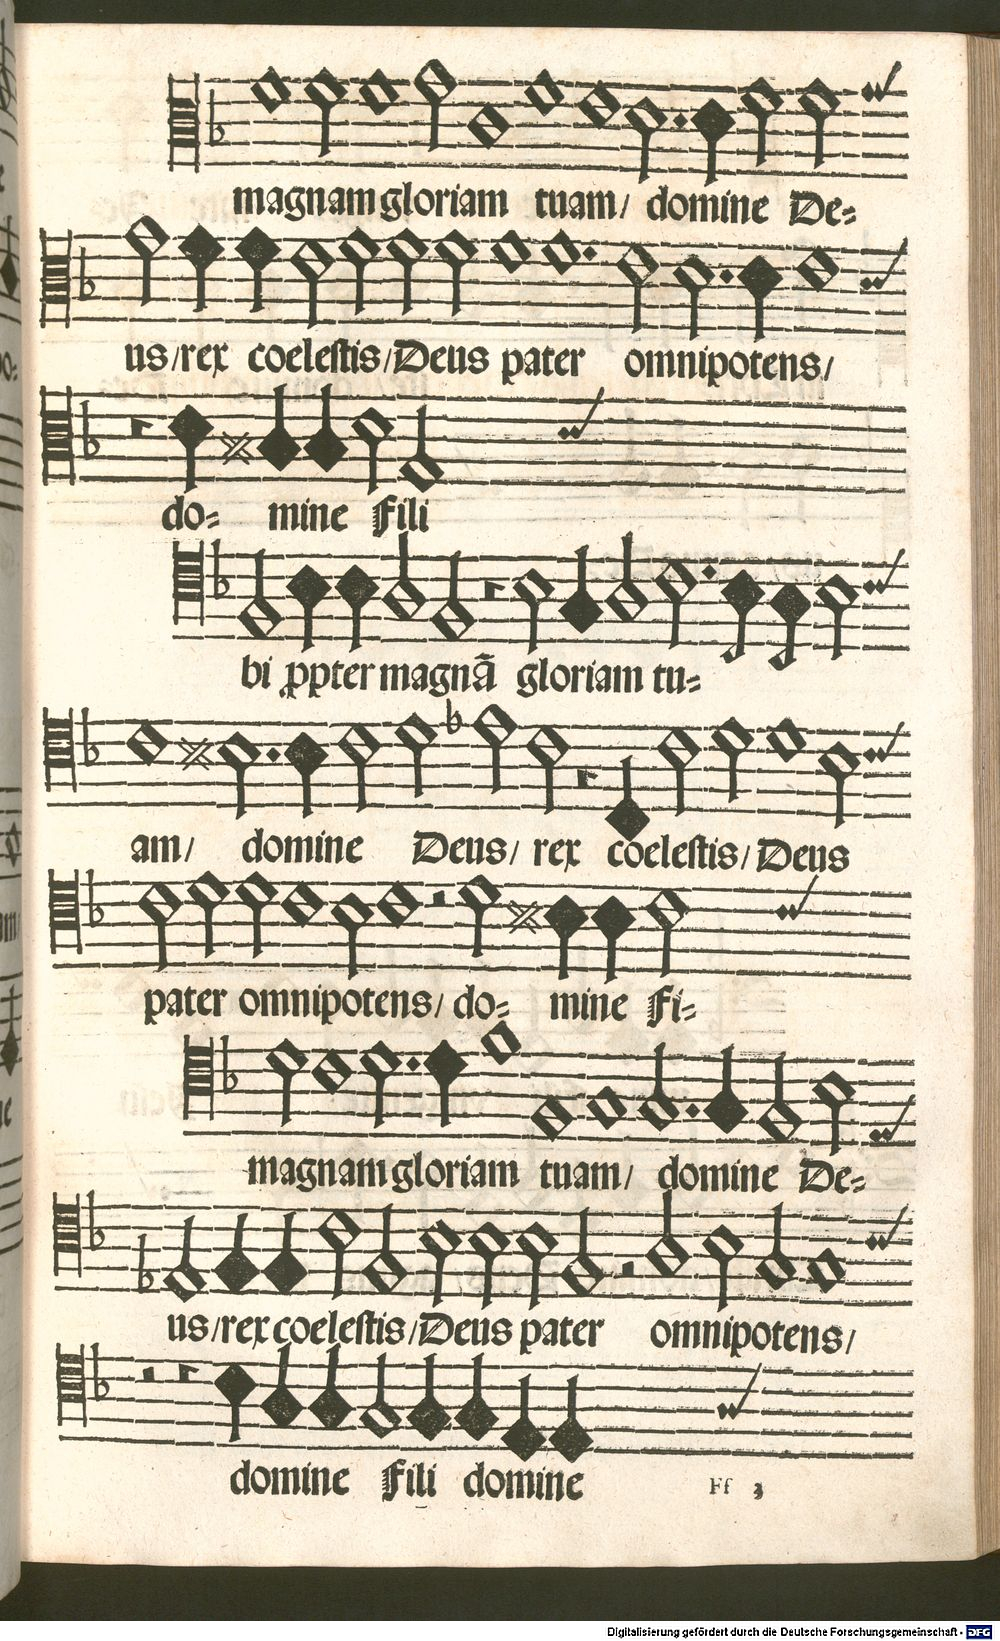 magnam gloriam tuam/ domine De=
us/rex coelestis/Deus pater omnipotens/
do= mine Fili
bi ꝓpter magnã gloriam tu=
am/ domine Deus/ rex coelestis/Deus
pater omnipotens/ do= mine Fi=
magnam gloriam tuam/ domine De=
us/rex coelestis/Deus pater omnipotens/
domine Fili domine
Ff 3
Digitalisierung gefördert durch die Deutsche Forschungsgemeinschaft - DFG